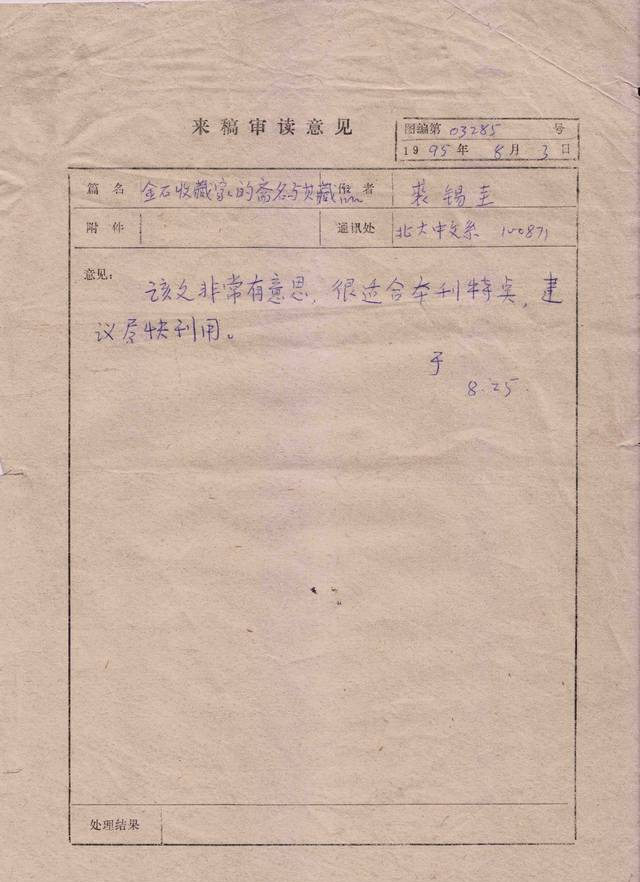 来稿审读意见
图编第 03285 号
1995年8月3日
篇名 金石收藏家的斋名与其藏品 作者 裘锡圭
附件 通讯处 北大中文系 100871
意见：
该文非常有意思，很适合本刊特点，建
议尽快刊用。
于
8.25.
处理结果